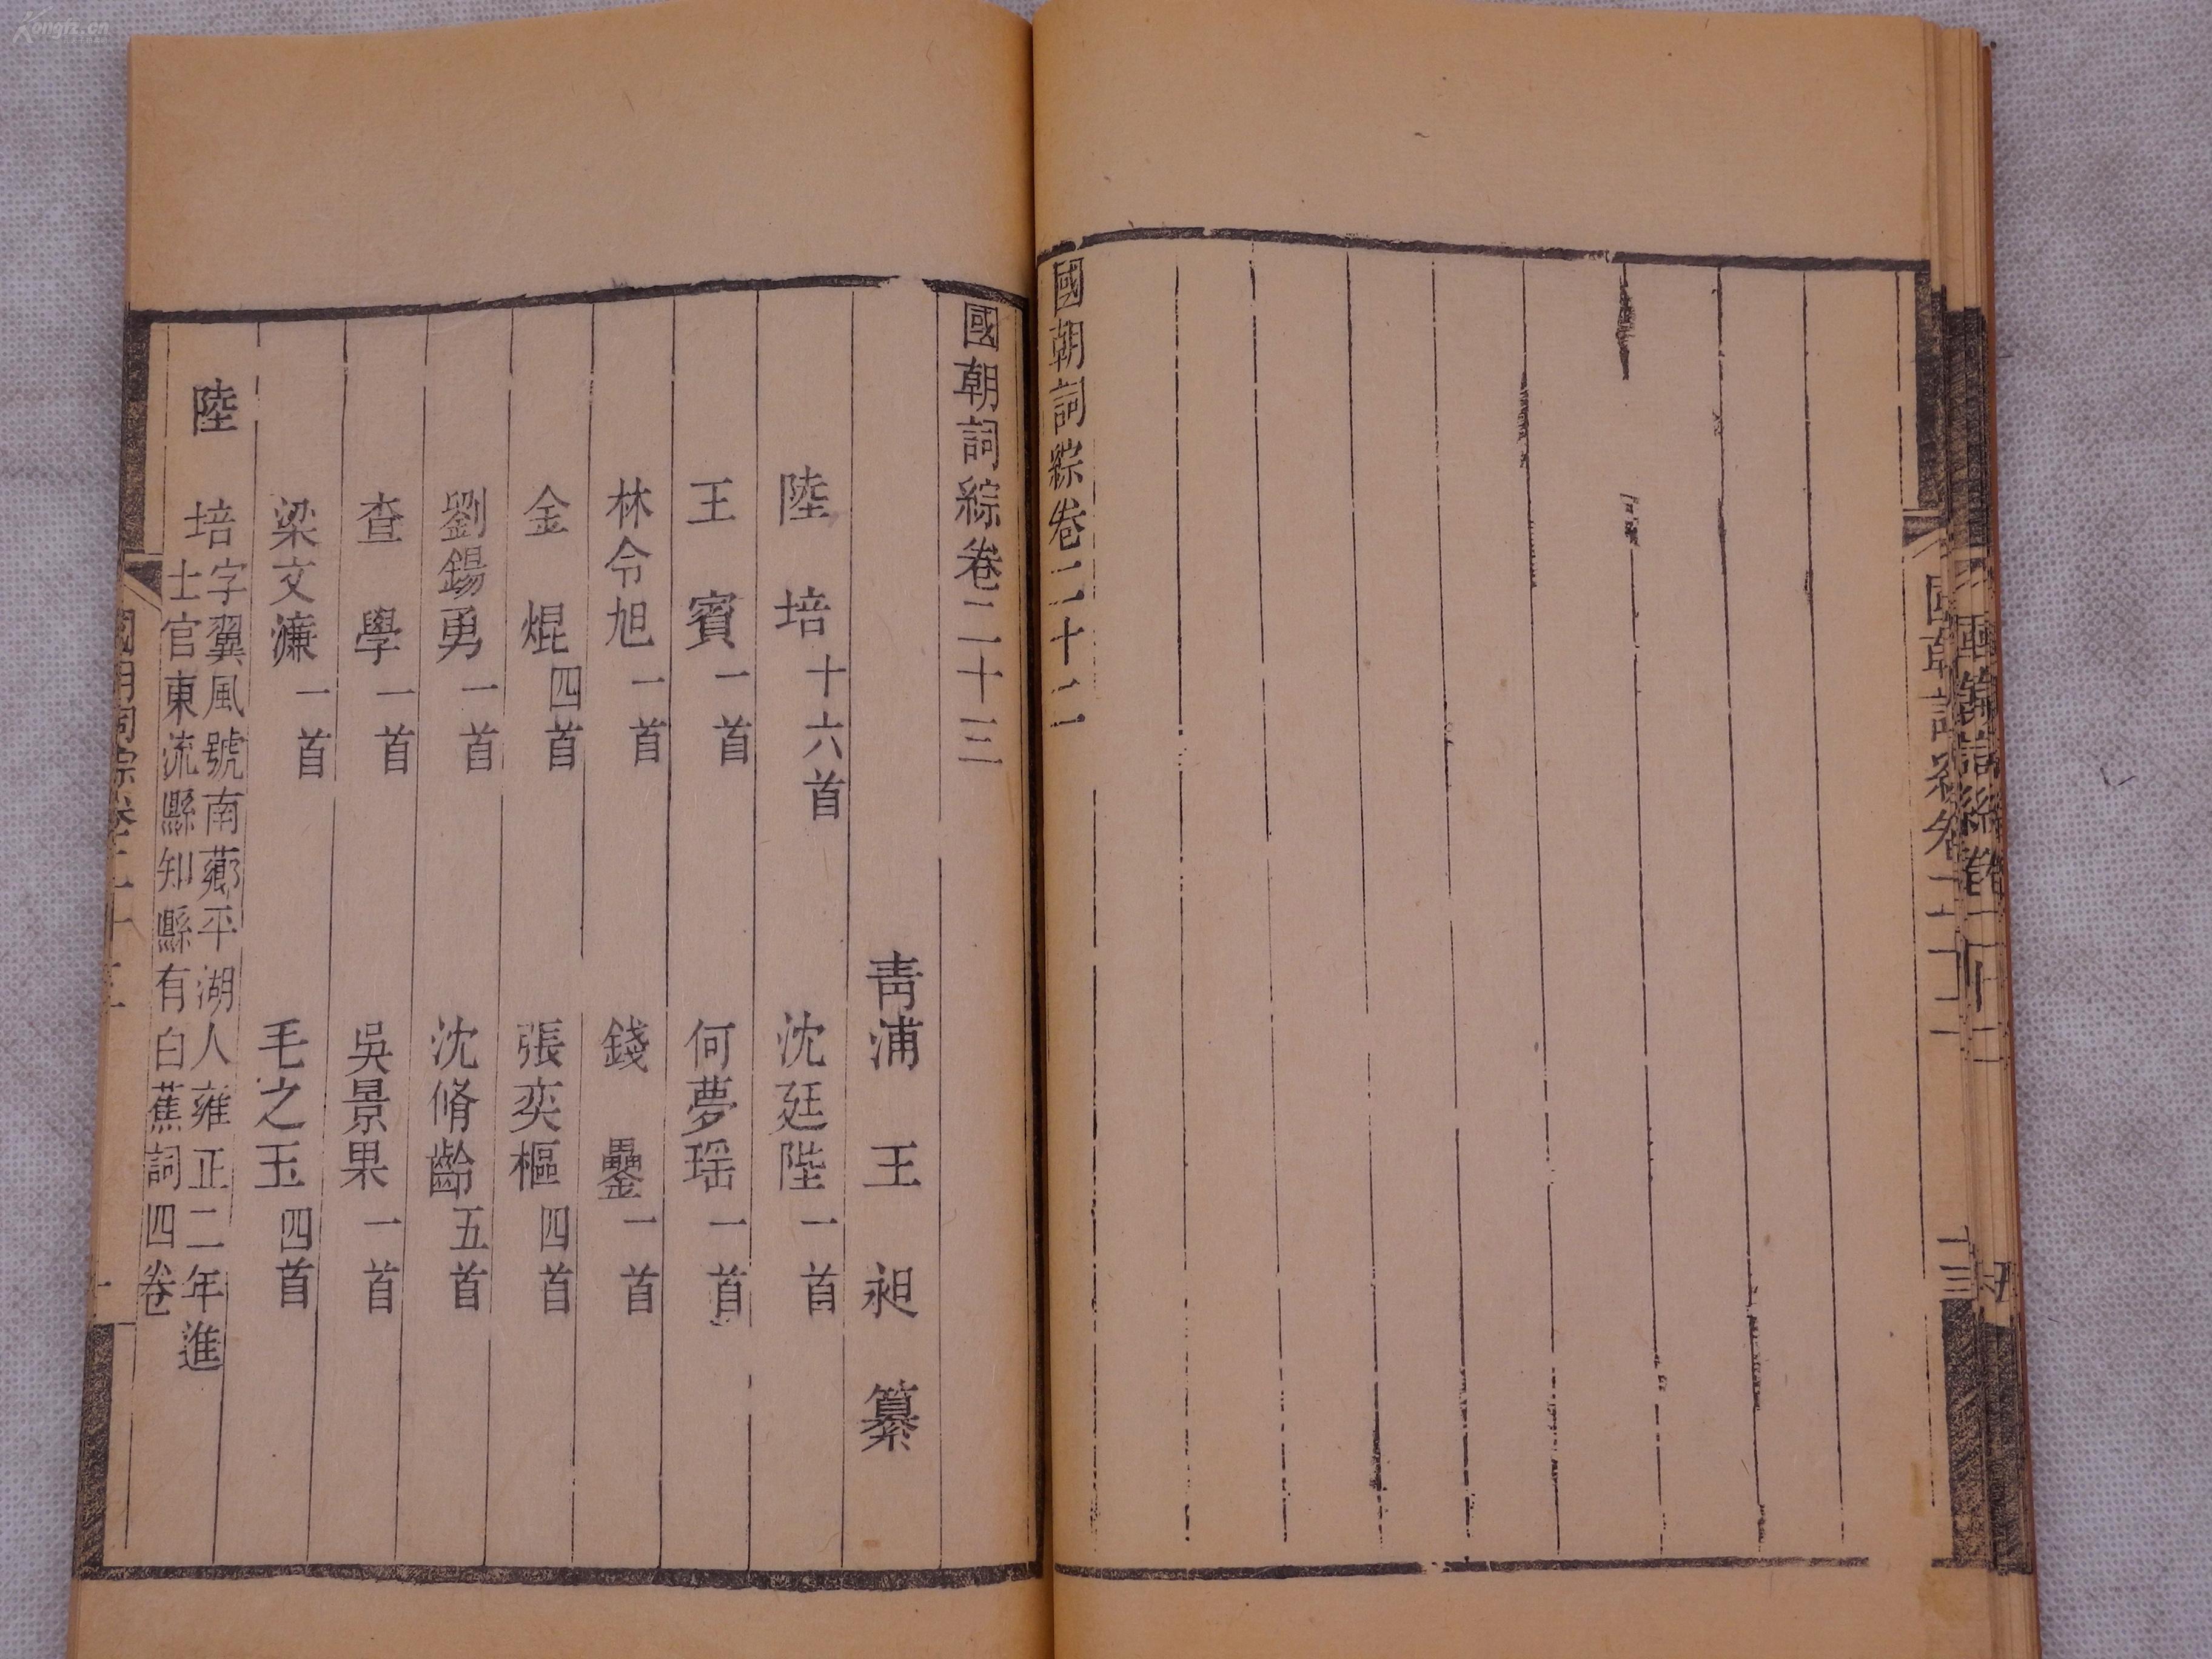 國朝詞綜卷二十二
國朝詞綜卷二十三
青浦 王 昶 纂
陸 培 十六首 沈廷陛 一首
王 賓 一首 何夢瑶 一首
林令旭 一首 錢 鑍 一首
金 焜 四首 張奕樞 四首
劉鍚勇 一首 沈脩齡 五首
查 學 一首 吳景果 一首
梁文濂 一首 毛之玉 四首
陸 培 字翼風號南薌平湖人雍正二年進
士官東流縣知縣有白蕉詞四卷
國朝詞綜卷二十三
一
Kongfz.cn